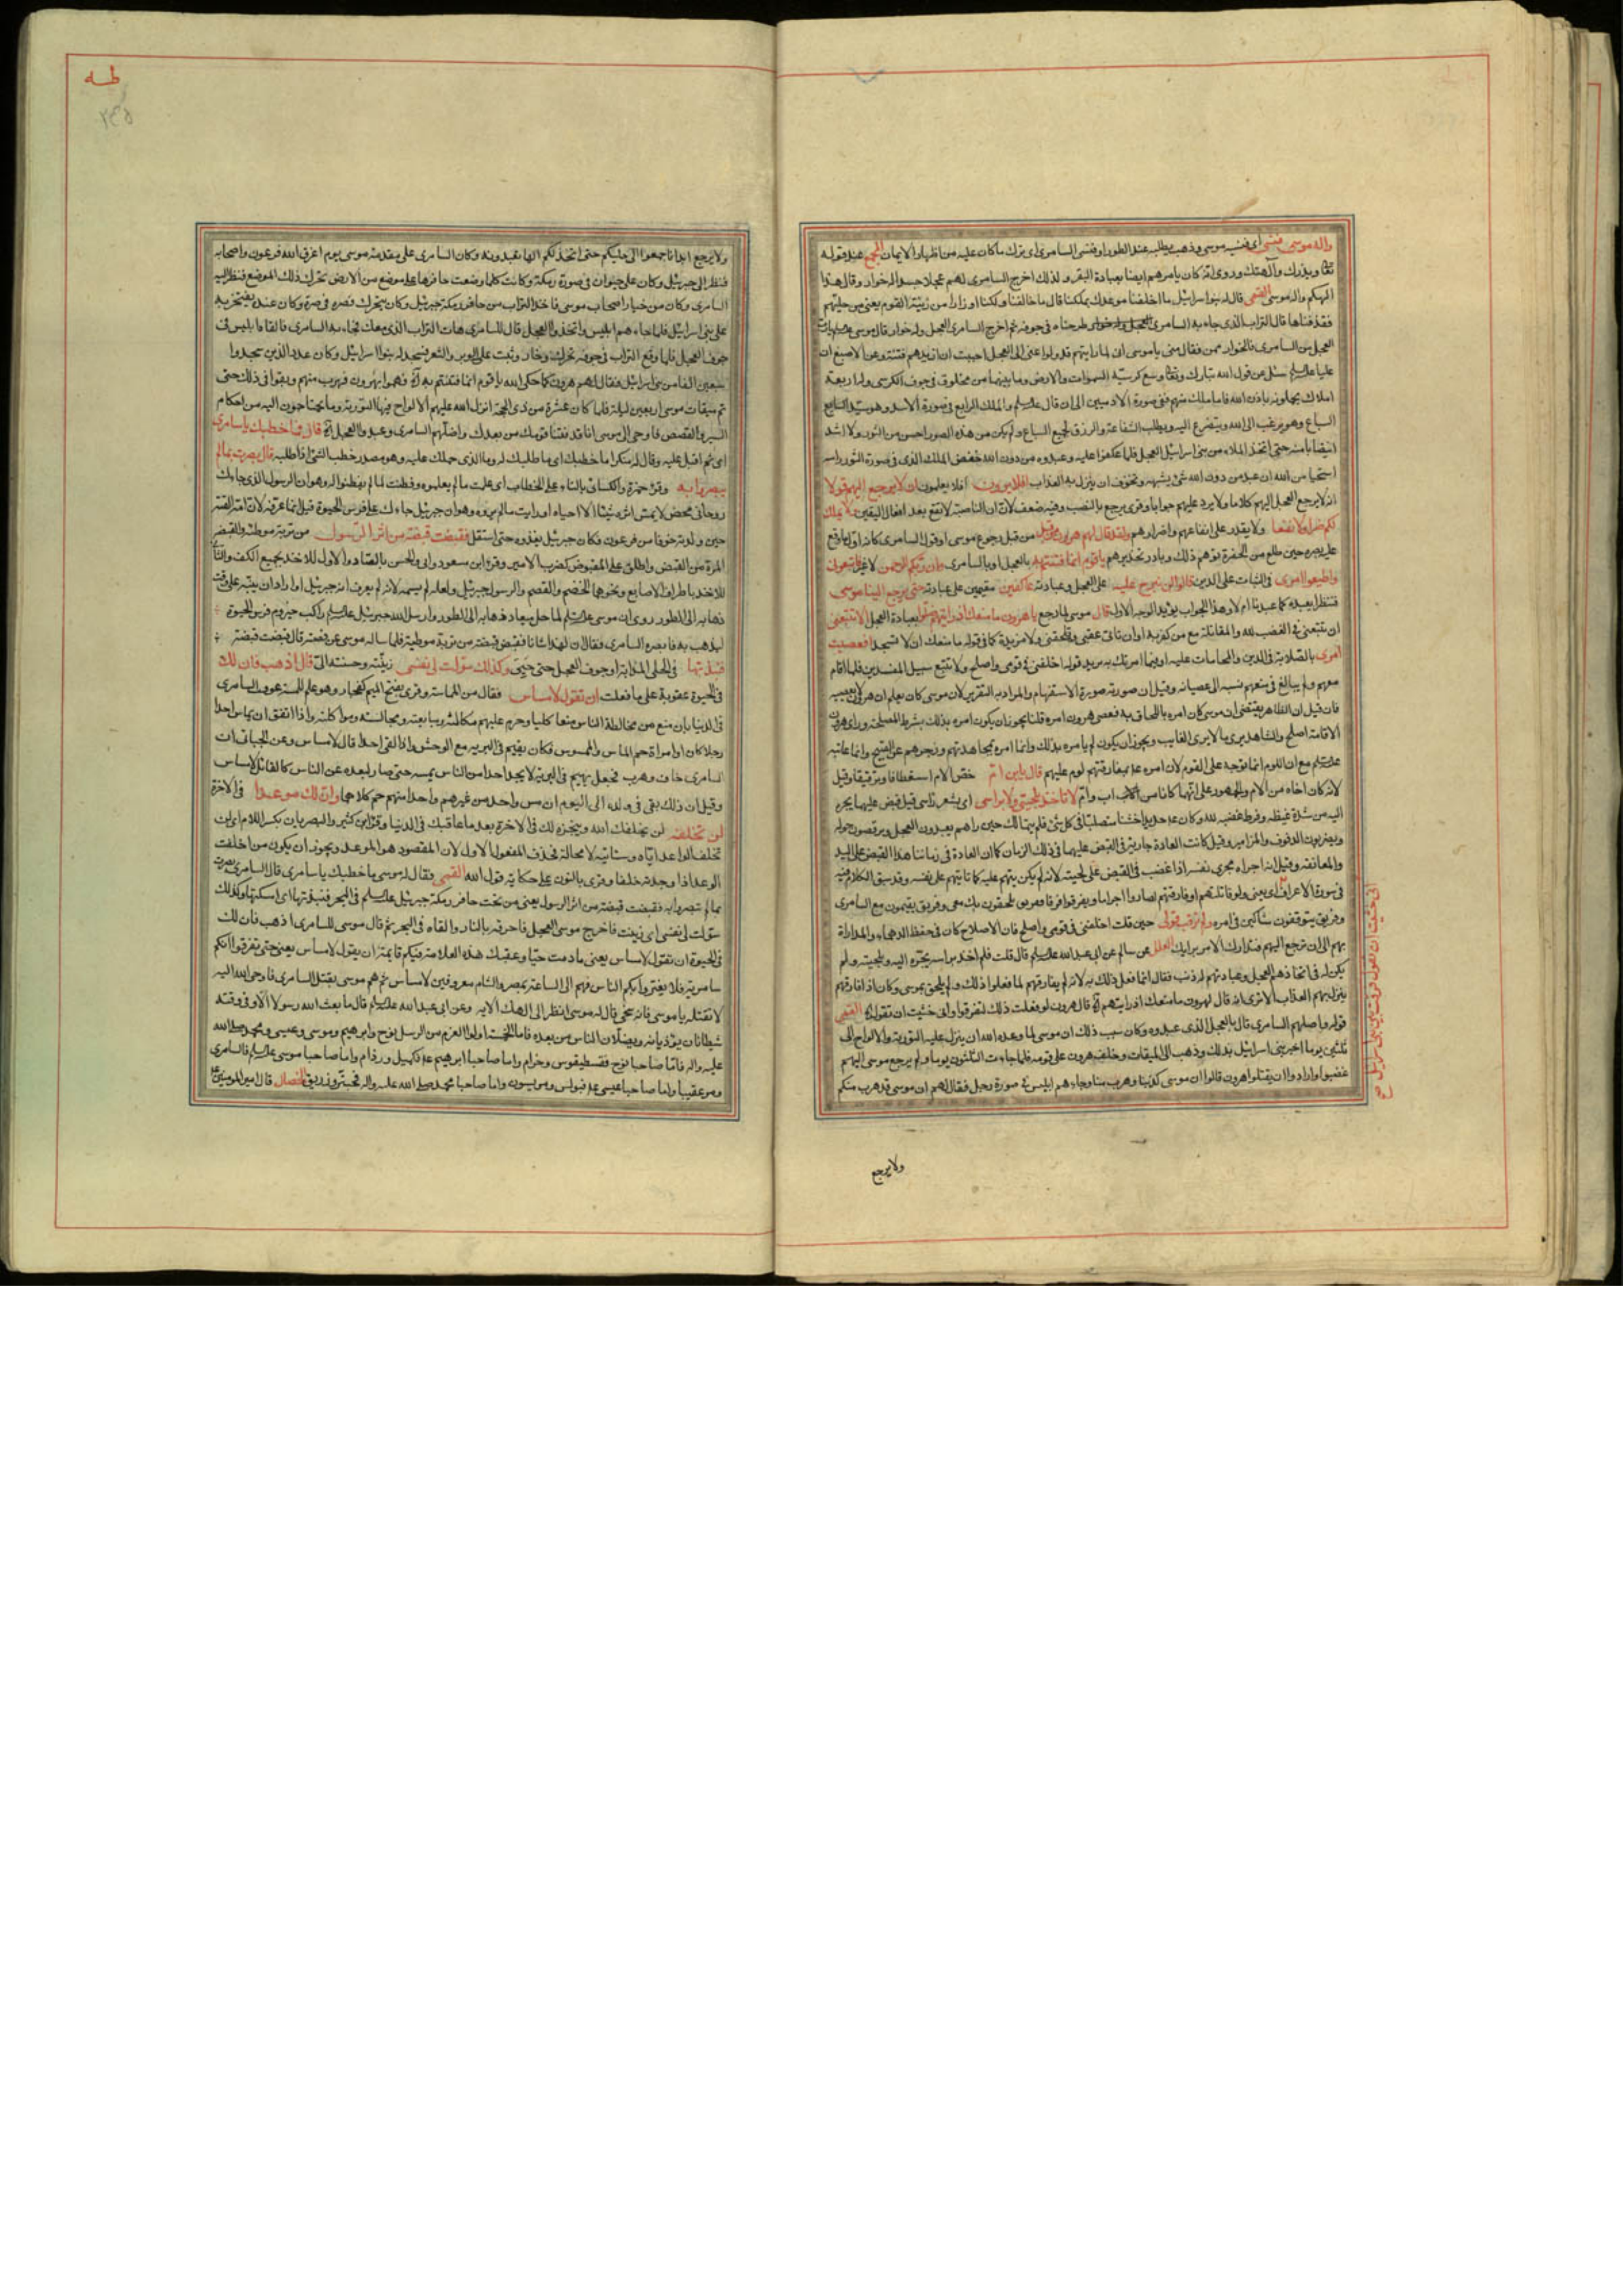 واله موسى فنسى اى فنسيه موسى وذهب يطلبه عند الطور او فنسى السامرى اى ترك ما كان عليه من اظهار الايمان
ويذرك وآلهتك وروى انه كان يامرهم ايضا بعبادة البقر ولذلك اخرج السامرى لهم عجلا جسدا له خوار وقال هذا
الهكم واله موسى القمى قال له بنو اسرائيل ما اخلفنا موعدك بملكنا قال ما خالفناك ولكنا حملنا اوزارا من زينة القوم يعنى من حليتهم
فقذفناها قال التراب الذى جاء به السامرى طرحناه فى جوفه ثم اخرج السامرى العجل وله خوار قال موسى
العجل من السامرى فالخوار ممن فقال منى يا موسى انى لما رايتهم قد ولوا عنى الى العجل احببت ان ازيدهم فتنة وعن الاصبغ ان
عليا سئل عن قول الله تبارك وتعالى وسع كرسيه السموات والارض وما بينهما من مخلوق فى جوف الكرسى وله اربعة
املاك يحملونه باذن الله فاما ملك منهم ففى صورة الادميين الى ان قال والملك الرابع فى صورة الاسد وهو سيد السباع
السباع وهو يرغب الى الله ويتضرع اليه ويطلب الشفاعة والرزق لجميع السباع ولم يكن من هذه الصور احسن من الثور ولا اشد
انتصابا منه حتى اتخذ الملاء من بنى اسرائيل العجل فلما عكفوا عليه وعبدوه من دون الله خفض الملك الذى فى صورة الثور راسه
استحيا من الله ان عبد من دون الله شئ يشبهه وتخوف ان ينزل به العذاب افلا يرون افلا يعلمون ان لا يرجع اليهم قولا
انه لا يرجع العجل اليهم كلاما ولا يرد عليهم جوابا وقرئ يرجع بالنصب وفيه ضعف لان ان الناصبة لا تقع بعد افعال اليقين ولا يملك
لهم ضرا ولا نفعا ولا يقدر على انفاعهم واضرارهم ولقد قال لهم هرون من قبل من قبل رجوع موسى او قول السامرى كانه اول ما وقع
عليه بصره حين طلع من الحفرة توهم ذلك وبادر تحذيرهم يا قوم انما فتنتم به بالعجل او بالسامرى وان ربكم الرحمن لا غير فاتبعونى
واطيعوا امرى فى الثبات على الدين قالوا لن نبرح عليه على العجل وعبادته عاكفين مقيمين على عبادته حتى يرجع الينا موسى
فننظر ايعبده كما عبدناه ام لا وهذا الجواب يؤيد الوجه الاول قال موسى لما رجع يا هرون ما منعك اذ رايتهم ضلوا بعبادة العجل الا تتبعنى
ان تتبعنى فى الغضب لله والمقاتلة مع من كفر به او ان تاتى عقبى وتلحقنى ولا مزيدة كما فى قوله ما منعك ان لا تسجد افعصيت
امرى بالصلابة فى الدين والمحامات عليه او فيما امرتك به يريد قوله اخلفنى فى قومى واصلح ولا تتبع سبيل المفسدين فلما اقام
معهم ولم يبالغ فى منعهم نسبه الى عصيانه وقيل ان صورته صورة الاستفهام والمراد به التقرير لان موسى كان يعلم ان هرون لا يعصيه
فان قيل ان الظاهر يقتضى ان موسى كان امره باللحاق به فعصى هرون امره قلنا يجوز ان يكون امره بذلك بشرط المصلحة وراى هرون
الاقامة اصلح والشاهد يرى ما لا يرى الغايب ويجوز ان يكون لم يامره بذلك وانما امره بمجاهدتهم وزجرهم عن القبيح وانما عاتبه
مع ان اللوم انما توجه على القوم لان امره بمفارقتهم لوم عليهم قال يا ابن ام خص الام استعطافا وترقيقا وقيل
لانه كان اخاه من الام والجمهور على انهما كانا من اب وام لا تاخذ بلحيتى ولا براسى اى بشعر راسى قيل قبض عليهما يجره
اليه من شدة غيظه وفرط غضبه لله وكان حديدا خشنا متصلبا فى كل شئ فلم يتمالك حين راهم يعبدون العجل ويرقصون حوله
ويضربون الدفوف والمزامير وقيل كانت العادة جارية فى القبض عليهما فى ذلك الزمان كما ان العادة فى زماننا هذا القبض على اليد
والمعانقة وقيل انه اجراه مجرى نفسه اذا غضب فى القبض على لحيته لانه لم يكن يتهم عليه كما لا يتهم على نفسه وقد سبق الكلام فيه
فى سورة الاعراف اى يعنى ولو قاتلتهم او فارقتهم لصاروا احزابا ويفرقوا فرقا ففريق يلحقون بك معى وفريق يقيمون مع السامرى
وفريق يتوقفون شاكين فى امره ولم ترقب قولى حين قلت اخلفنى فى قومى واصلح فان الاصلاح كان فى حفظ الدهماء والمداراة
بهم الى ان ترجع اليهم فتدارك الامر برايك العلل عن سالم عن ابى عبد الله قال قلت فلم اخذ براسه يجره اليه وبلحيته ولم
يكن له فى اتخاذهم العجل وعبادتهم له ذنب فقال انما فعل ذلك به لانه لم يفارقهم لما فعلوا ذلك ولم يلحق بموسى وكان اذا فارقهم
ينزل بهم العذاب الا ترى انه قال لهرون ما منعك اذ رايتهم قال هرون لو فعلت ذلك لتفرقوا وانى خشيت ان تقول القمى
قوله واضلهم السامرى قال بالعجل الذى عبدوه وكان سبب ذلك ان موسى لما وعده الله ان ينزل عليه التورية والالواح الى
ثلثين يوما اخبر بنى اسرائيل بذلك وذهب الى الميقات وخلف هرون على قومه فلما جاءت الثلثون يوما ولم يرجع موسى اليهم
غضبوا وارادوا ان يقتلوا هرون قالوا ان موسى كذبنا وهرب منا وجاءهم ابليس فى صورة رجل فقال لهم ان موسى قد هرب منكم
انى خشيت ان تقول فرقت بين بنى اسرائيل
ولا يرجع
طه
ولا يرجع ابدا فاجمعوا الى حليكم حتى اتخذ لكم الها تعبدونه وكان السامرى على مقدمة موسى يوم اغرق الله فرعون واصحابه
فنظر الى جبرئيل وكان على حيوان فى صورة رمكة وكانت كلما وضعت حافرها على موضع من الارض تحرك ذلك الموضع فنظر اليه
السامرى وكان من خيار اصحاب موسى فاخذ التراب من حافر رمكة جبرئيل وكان يتحرك فصره فى صرة وكان عنده يفتخر به
على بنى اسرائيل فلما جاءهم ابليس واتخذوا العجل قال للسامرى هات التراب الذى معك فجاء به السامرى فالقاه ابليس فى
جوف العجل فلما وقع التراب فى جوفه تحرك وخار ونبت عليه الوبر والشعر فسجد له بنوا اسرائيل وكان عدد الذين سجدوا
سبعين الفا من بنى اسرائيل فقال لهم هرون كما حكى الله يا قوم انما فتنتم به فهموا بهرون فهرب منهم وبقوا فى ذلك حتى
تم ميقات موسى اربعين ليلة فلما كان عشرة من ذى الحجة انزل الله عليهم الالواح فيها التورية وما يحتاجون اليه من احكام
السير والقصص فاوحى الى موسى انا قد فتنا قومك من بعدك واضلهم السامرى وعبدوا العجل قال فما خطبك يا سامرى
اى ثم اقبل عليه وقال له منكرا ما خطبك اى ما طلبك له وما الذى حملك عليه وهو مصدر خطب الشئ اذا طلبه قال بصرت بما لم
يبصروا به وقرئ حمزة والكسائى بالتاء على الخطاب اى علمت ما لم يعلموه وفطنت لما لم يفطنوا له وهو ان الرسول الذى جاءك
روحانى محض لا يمس اثره شيئا الا احياه او رايت ما لم يروه وهو ان جبرئيل جاءك على فرس الحيوة قيل انما عرفه لان امه القته
حين ولدته خوفا من فرعون وكان جبرئيل يغذوه حتى استقل فقبضت قبضة من اثر الرسول من تربة موطئه والقبضة
المرة من القبض واطلق على المقبوض كضرب الامير وقرئ ابن مسعود وابى والحسن بالصاد والاول للاخذ بجميع الكف والثانى
للاخذ باطراف الاصابع ونحوهما الخضم والقضم والرسول جبرئيل ولعله لم يسمه لانه لم يعرف انه جبرئيل او اراد ان ينبه على وقت
ذهابه الى الطور روى ان موسى لما حل ميعاد ذهابه الى الطور وارسل الله جبرئيل راكب حيزوم فرس الحيوة
ليذهب به فابصره السامرى فقال ان لهذا شانا فقبض قبضة من تربة موطئه فلما ساله موسى عن قصته قال قبضت قبضة
فنبذتها فى الحلى المذابة او جوف العجل حتى حيى وكذلك سولت لى نفسى زينته وحسنته الى قال اذهب فان لك
فى الحيوة عقوبة على ما فعلت ان تقول لا مساس فقال من المماسة وقرئ بفتح الميم كفجار وهو علم للمسة عوقب السامرى
فى الدنيا بان منع من مخالطة الناس منعا كليا وحرم عليهم مكالمته ومبايعته ومجالسته ومواكلته واذا اتفق ان يماس احدا
رجلا كان او امراة حم الماس والممسوس فكان يقيم فى البرية مع الوحش واذا لقى احدا قال لا مساس وعن الجبائى ان
السامرى خاف وهرب فجعل يهيم فى البرية لا يجد احدا من الناس يمسه حتى صار لبعده عن الناس كالقائل لا مساس
وقيل ان ذلك بقى فى ولده الى اليوم ان مس واحد من غيرهم واحدا منهم حم كلاهما وان لك موعدا فى الاخرة
لن تخلفه لن يخلفك الله وينجزه لك فى الاخرة بعد ما عاقبك فى الدنيا وقرئ ابن كثير والبصريان بكسر اللام اى لن
تخلف الواعد اياه وستاتيه لا محالة فحذف المفعول الاول لان المقصود هو الموعد ويجوز ان يكون من اخلفت
الوعد اذا وجدته خلفا وقرئ بالنون على حكاية قول الله القمى فقال له موسى ما خطبك يا سامرى قال السامرى بصرت
بما لم تبصروا به فقبضت قبضة من اثر الرسول يعنى من تحت حافر رمكة جبرئيل فى البحر فنبذتها اى امسكتها وكذلك
سولت لى نفسى اى زينت فاخرج موسى العجل فاحرقه بالنار والقاه فى البحر ثم قال موسى للسامرى اذهب فان لك
فى الحيوة ان تقول لا مساس يعنى ما دمت حيا وعقبك هذه العلامة فيكم قايمة ان يقول لا مساس يعنى حتى تعرفوا انكم
سامرية فلا يغتر بكم الناس فهم الى الساعة بمصر والشام معروفين لا مساس ثم هم موسى بقتل السامرى فاوحى الله اليه
لا تقتله يا موسى فانه سخى قال له موسى انظر الى الهك الاية وعن ابى عبد الله قال ما بعث الله رسولا الا وفى وقته
شيطانان يؤذيانه ويضلان الناس من بعده فاما الخمسة اولوا العزم من الرسل نوح وابرهيم وموسى وعيسى ومحمد صلى الله
عليه واله فاما صاحبا نوح ففسطيقوس وخرام واما صاحبا ابرهيم فمكيل ورذام واما صاحبا موسى فالسامرى
ومرعقيبا واما صاحبا عيسى فبولس ومريسون واما صاحبا محمد صلى الله عليه واله فحبتر وزريق الخصال قال امير المؤمنين